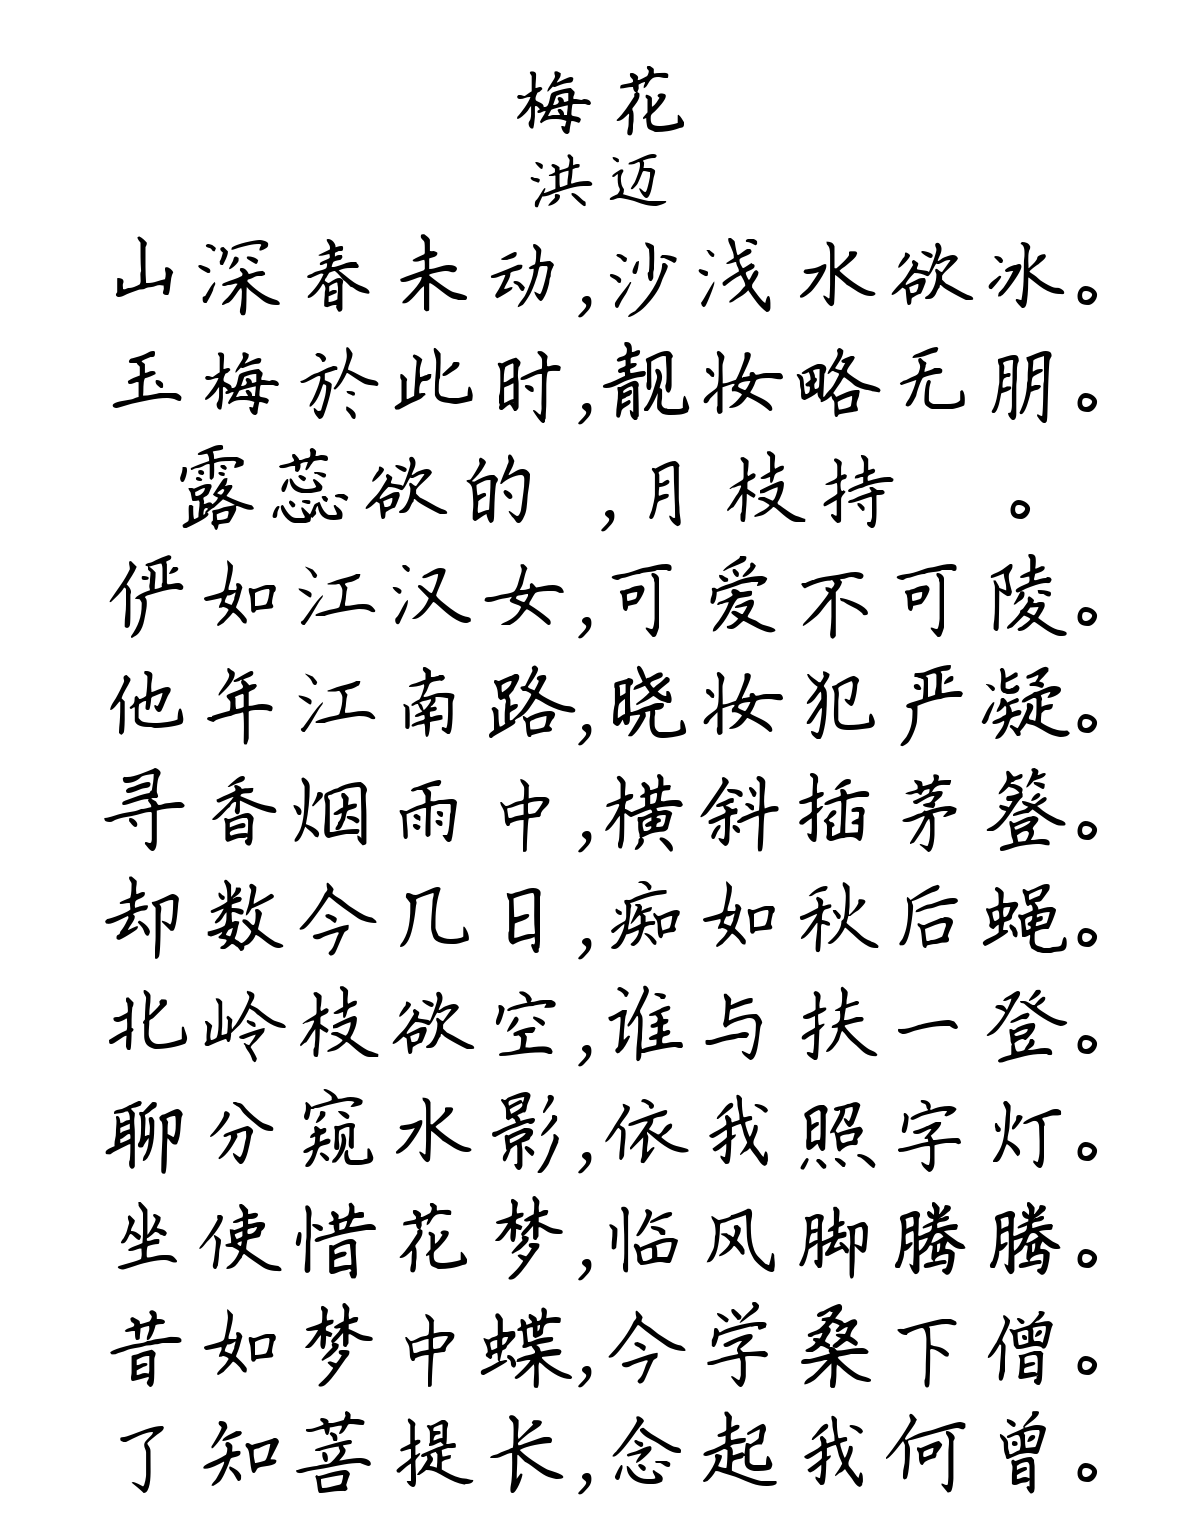 梅花
洪迈
山深春未动,沙浅水欲冰。
玉梅於此时,靓妆略无朋。
露蕊欲的 ,月枝持 。
俨如江汉女,可爱不可陵。
他年江南路,晓妆犯严凝。
寻香烟雨中,横斜插茅簦。
却数今几日,痴如秋后蝇。
北岭枝欲空,谁与扶一登。
聊分窥水影,依我照字灯。
坐使惜花梦,临风脚腾腾。
昔如梦中蝶,今学桑下僧。
了知菩提长,念起我何曾。